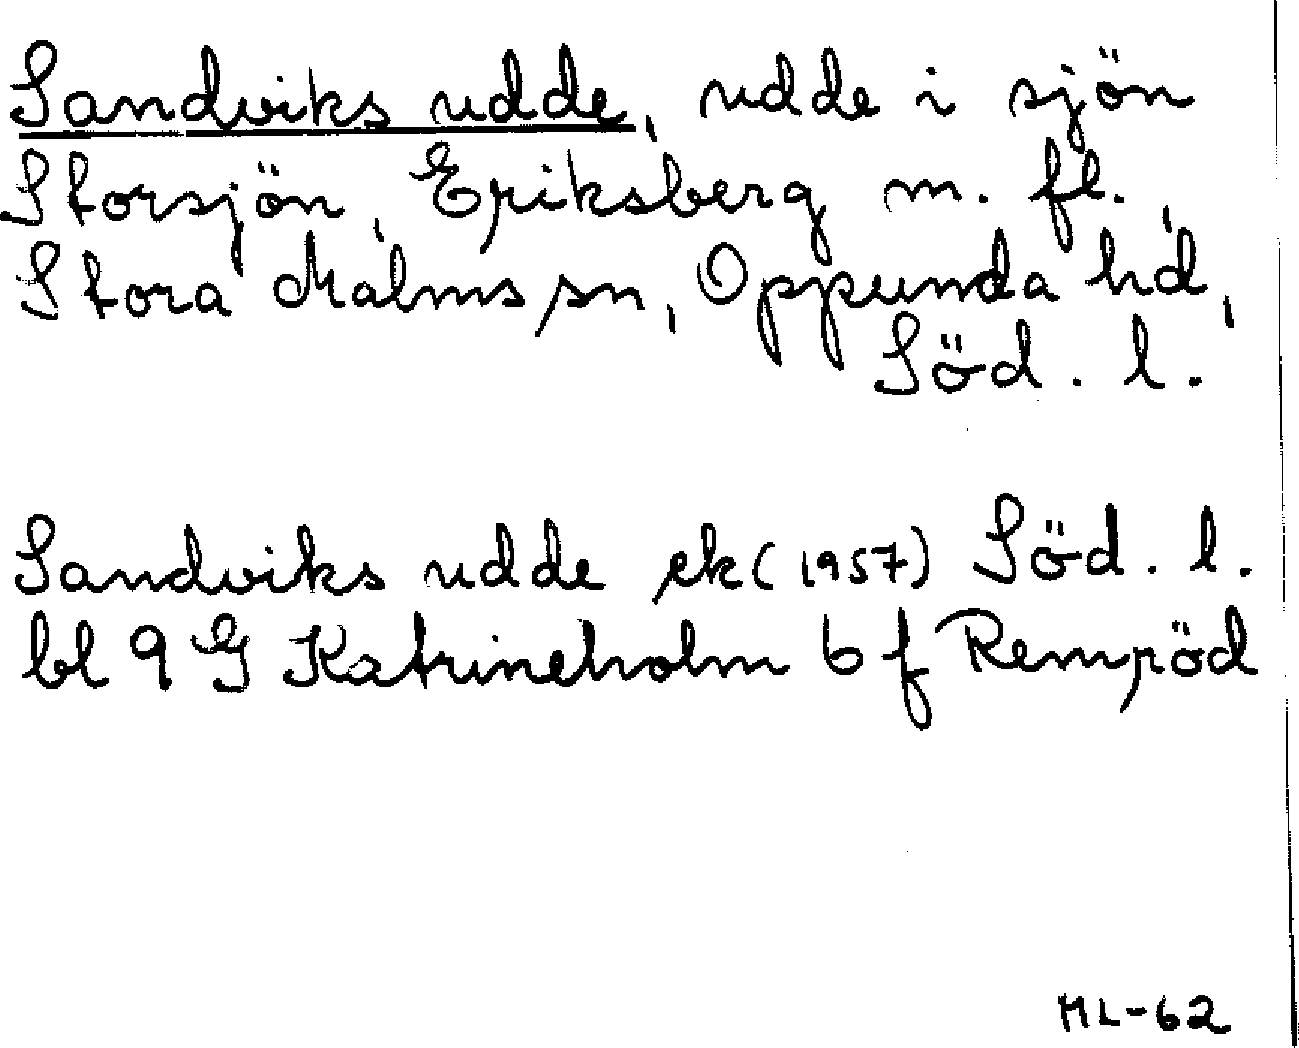 Sandviks udde, udde i sjön
Storsjön, Eriksberg m. fl.,
Stora Malms sn, Oppunda hd,
Söd. l.
Sandviks udde ek (1957) Söd. l.
bl 9 G Katrineholm 6 f Rempöd
ML-62